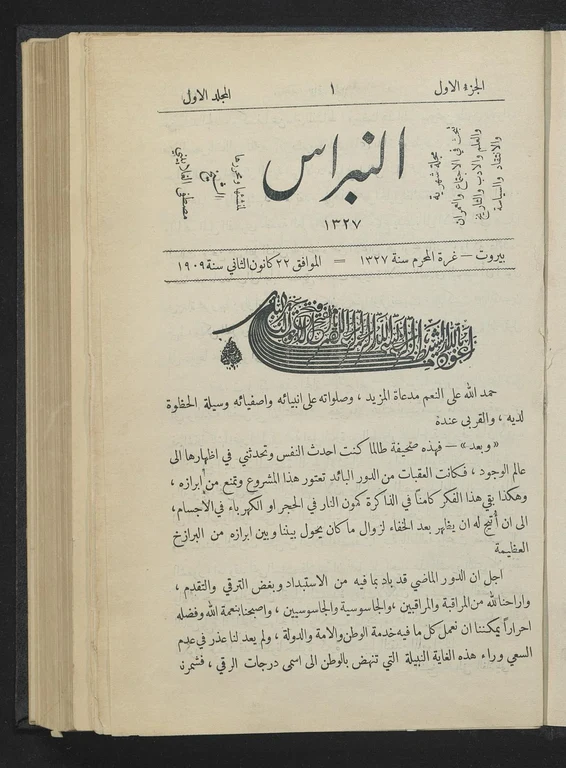 الجزء الاول
١
المجلد الاول
مجلة شهرية
تبحث في الاجتماع والعمران
والعلم والادب والتاريخ
والانتقاد والسياسة
النبراس
١٣٢٧
لمنشئها ومحررها
الشيخ
مصطفى الغلاييني
بيروت – غرة المحرم سنة ١٣٢٧ = الموافق ٢٢ كانون الثاني سنة ١٩٠٩
حمد الله على النعم مدعاة المزيد ، وصلواته على انبيائه واصفيائه وسيلة الحظوة
لديه ، والقربى عنده
«وبعد» – فهذه صحيفة طالما كنت احدث النفس وتحدثني في اظهارها الى
عالم الوجود ، فكانت العقبات من الدور البائد تعتور هذا المشروع وتمنع من أبرازه ،
وهكذا بقي هذا الفكر كامناً في الذاكرة كمون النار في الحجر او الكهرباء في الأجسام ،
الى ان أُتيح له ان يظهر بعد الخفاء لزوال ما كان يحول بيننا وبين ابرازه من البرازخ
العظيمة
اجل ان الدور الماضي قد باد بما فيه من الاستبداد وبغض الترقي والتقدم ،
واراحنا الله من المراقبة والمراقبين ، والجاسوسية والجاسوسيين ، واصبحنا بنعمة الله وفضله
احراراً يمكننا ان نعمل كل ما فيه خدمة الوطن والامة والدولة ، ولم يعد لنا عذر في عدم
السعي وراء هذه الغاية النبيلة التي تنهض بالوطن الى اسمى درجات الرقي ، فشمرنا